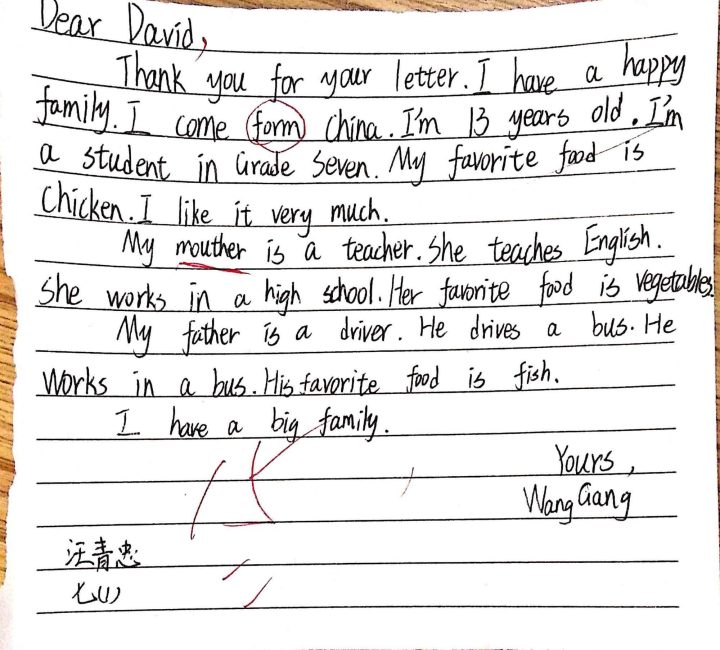 Dear David,
Thank you for your letter. I have a happy
family. I come form China. I'm 13 years old. I'm
a student in Grade Seven. My favorite food is
Chicken. I like it very much.
My mouther is a teacher. She teaches English.
She works in a high school. Her favorite food is vegetables.
My father is a driver. He drives a bus. He
Works in a bus. His favorite food is fish.
I have a big family.
Yours,
Wang Gang
汪青忠
七(1)